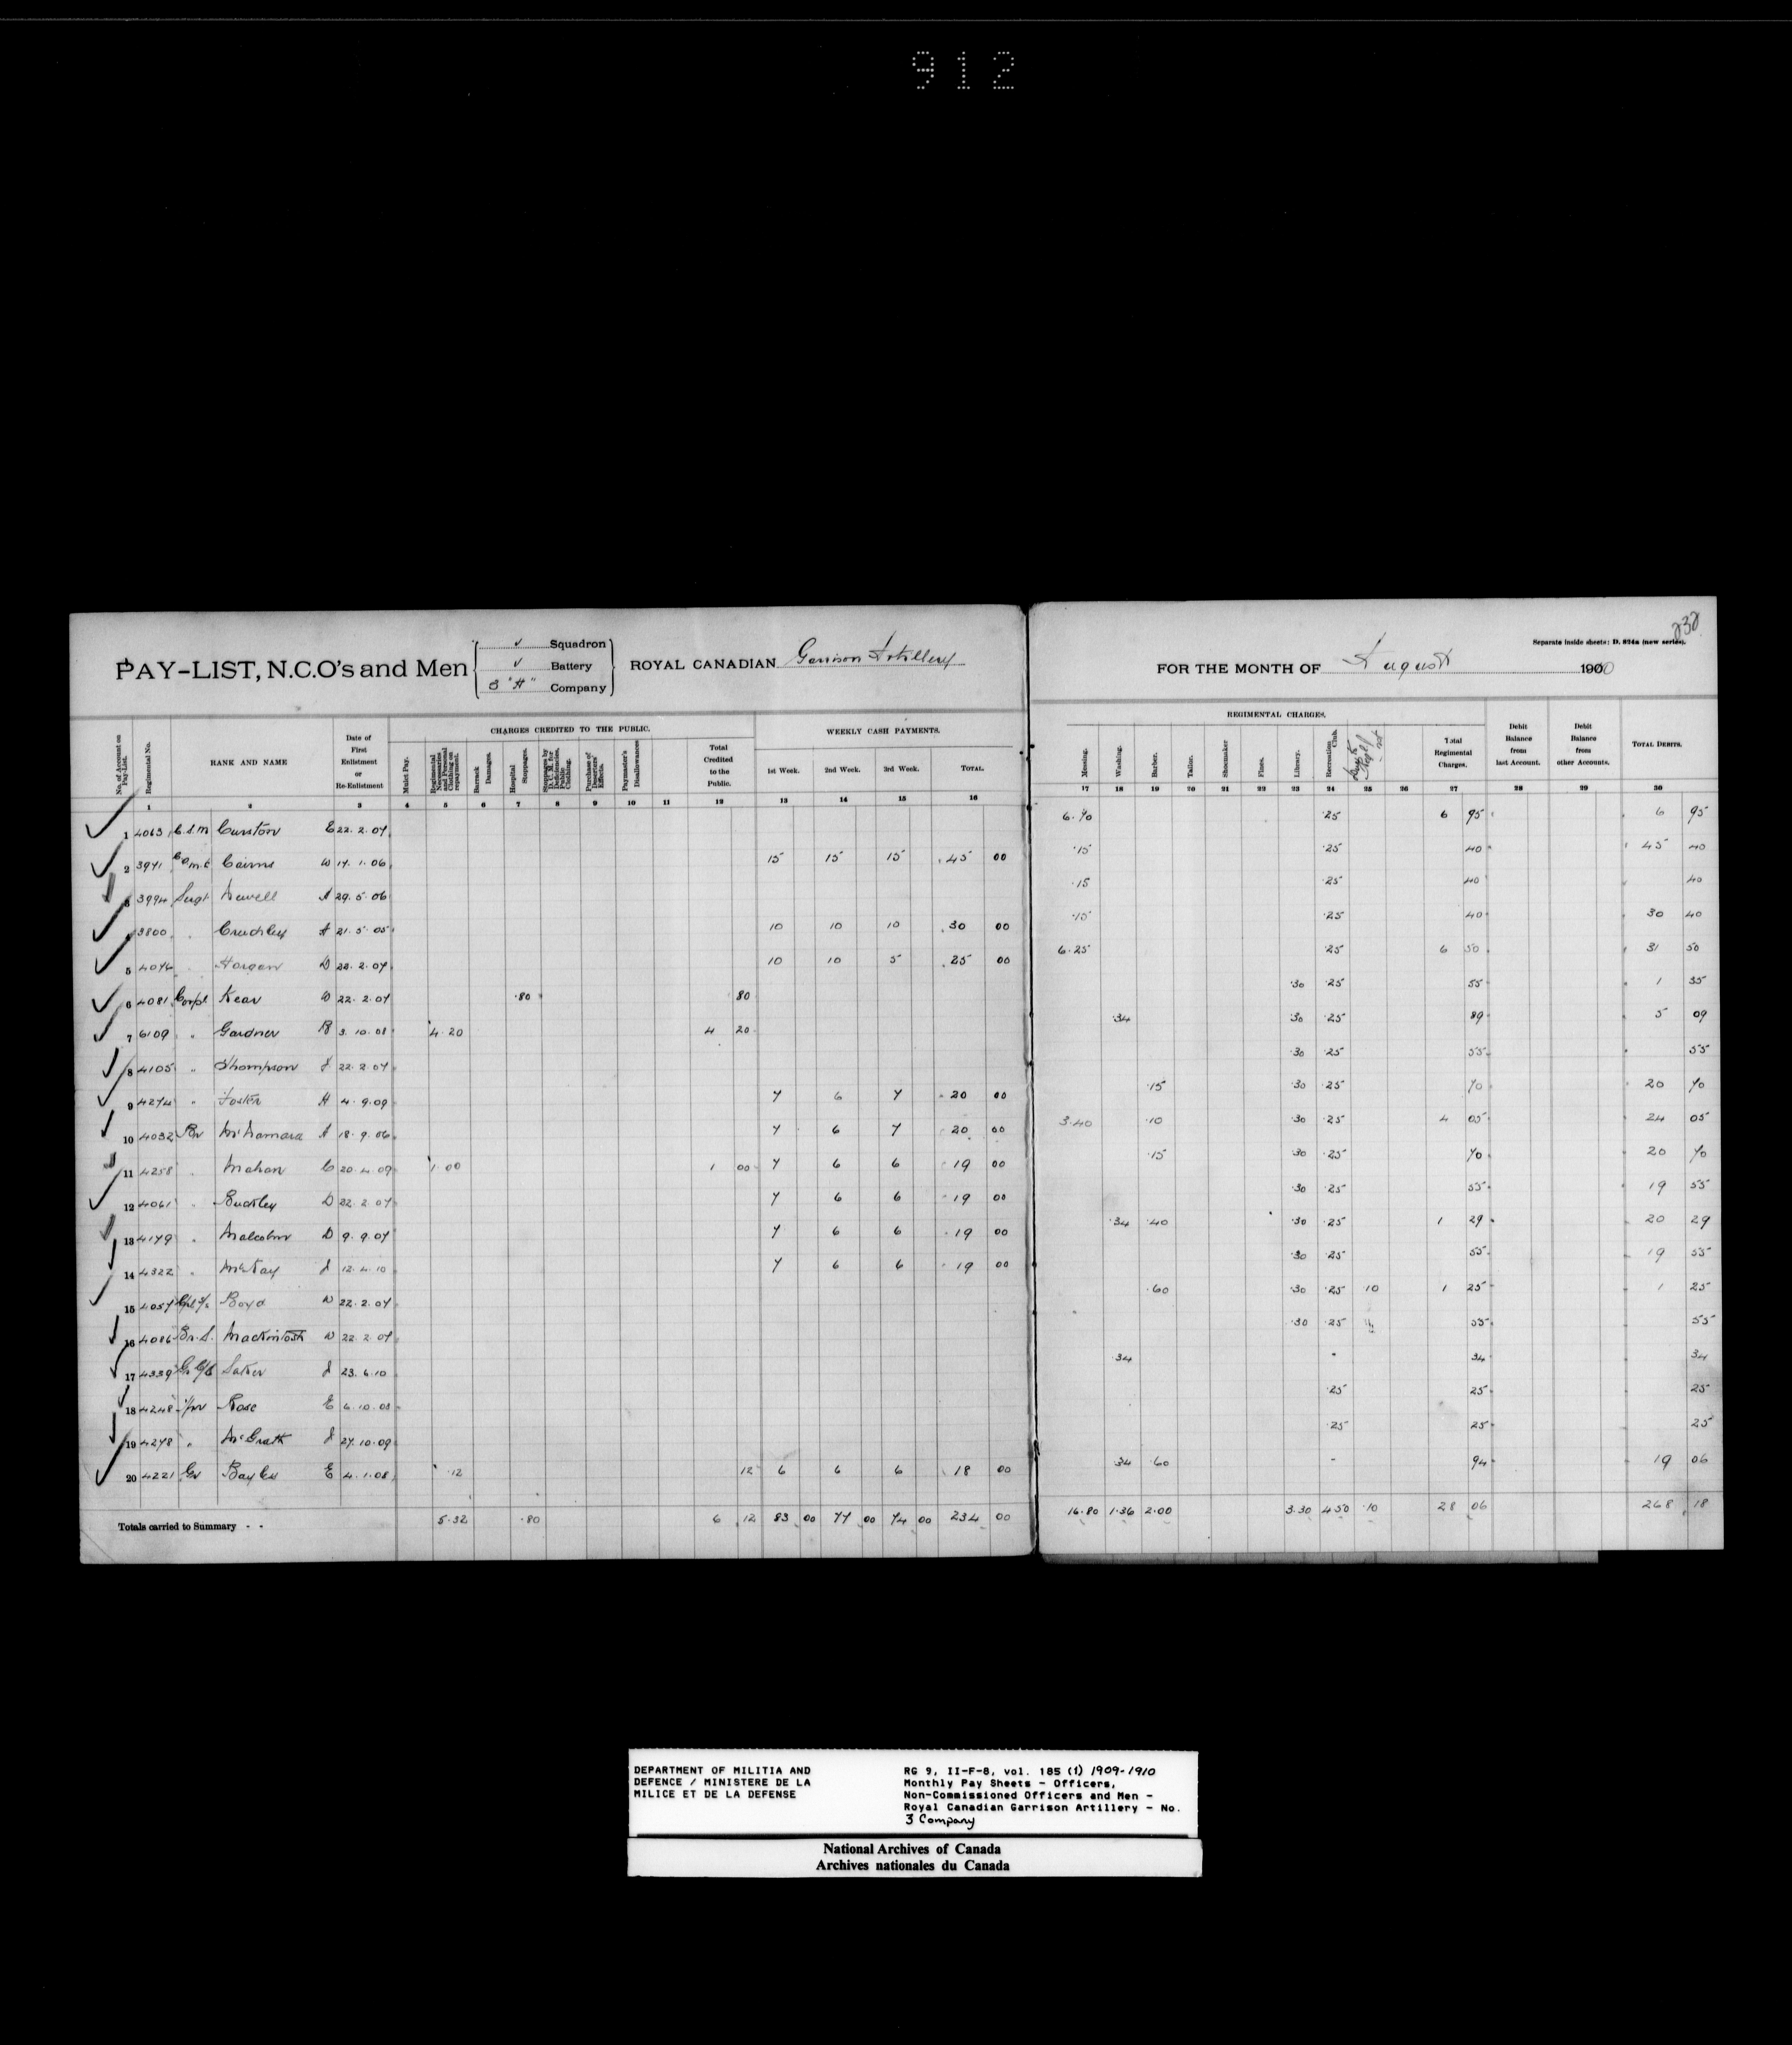 912
232
Separate inside sheets: D. 824a (new series).
PAY-LIST, N.C.O's and Men { ✓ Squadron ✓ Battery 3 "H" Company } ROYAL CANADIAN Garrison Artillery FOR THE MONTH OF August 1900
CHARGES CREDITED TO THE PUBLIC. WEEKLY CASH PAYMENTS. REGIMENTAL CHARGES.
No. of Account on Pay-List. Regimental No. RANK AND NAME Date of First Enlistment or Re-Enlistment Mulct Pay. Regimental Necessaries and Personal Clothing on repayment. Barrack Damages. Hospital Stoppages. Purchase of Deserters' Effects. Paymaster's Disallowances Total Credited to the Public. 1st Week. 2nd Week. 3rd Week. TOTAL. Messing. Washing. Barber. Tailor. Shoemaker Fines. Library. Recreation Club. Total Regimental Charges. Debit Balance from last Account. Debit Balance from other Accounts. TOTAL DEBITS.
1 2 3 4 5 6 7 8 9 10 11 12 13 14 15 16 17 18 19 20 21 22 23 24 25 26 27 28 29 30
1 4063 C.S.M Curston E 22.2.07 6.70 .25 6 95 6 95
2 3971 Cairns W 17.1.06 15 15 15 45 00 .15 .25 40 45 40
3 3994 Sergt Newell A 29.5.06 .15 .25 40 40
4 3800 " Cruchley A 21.5.05 10 10 10 30 00 .15 .25 40 30 40
5 4074 " Horgan D 22.2.07 10 10 5 25 00 6.25 .25 6 50 31 50
6 4081 Corpl Kear W 22.2.07 .80 80 .30 .25 55 1 35
7 6109 " Gardner R 3.10.08 4.20 4 20 .34 .30 .25 89 5 09
8 4105 " Thompson J 22.2.07 .30 .25 55 55
9 4274 " Foster H 4.9.09 7 6 7 20 00 .15 .30 .25 70 20 70
10 4032 Br McNamara A 18.9.06 7 6 7 20 00 3.40 .10 .30 .25 4 05 24 05
11 4258 " Mahon C 20.4.09 1.00 1 00 7 6 6 19 00 .15 .30 .25 70 20 70
12 4061 " Buckley D 22.2.07 7 6 6 19 00 .30 .25 55 19 55
13 4179 " Malcolm D 9.9.07 7 6 6 19 00 .34 .40 .30 .25 1 29 20 29
14 4322 " McKay J 12.4.10 7 6 6 19 00 .30 .25 55 19 55
15 4057 Boyd W 22.2.07 .60 .30 .25 10 1 25 1 25
16 4086 Mackintosh W 22.2.07 .30 .25 55 55
17 4339 Saker J 23.6.10 .34 34 34
18 4248 Rose E 6.10.08 .25 25 25
19 4278 " McGrath J 27.10.09 .25 25 25
20 4221 Gr Bayley E 4.1.08 .12 12 6 6 6 18 00 .34 .60 94 19 06
Totals carried to Summary - - 5.32 .80 6 12 83 00 77 00 74 00 234 00 16.80 1.36 2.00 3.30 4.50 .10 28 06 268 18
DEPARTMENT OF MILITIA AND
DEFENCE / MINISTERE DE LA
MILICE ET DE LA DEFENSE
RG 9, II-F-8, vol. 185 (1) 1909-1910
Monthly Pay Sheets - Officers,
Non-Commissioned Officers and Men -
Royal Canadian Garrison Artillery - No.
3 Company
National Archives of Canada
Archives nationales du Canada